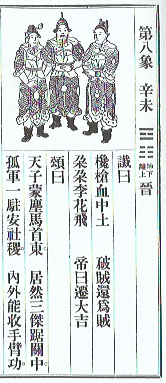 第八象　辛未　䷢　坤下離上　晉
讖曰
欃槍血中土　破賊還為賊
朵朵李花飛　帝曰遷大吉
頌曰
天子蒙塵馬首東。　居然三傑踞關中。
孤軍一駐安社稷。　內外能收手臂功。